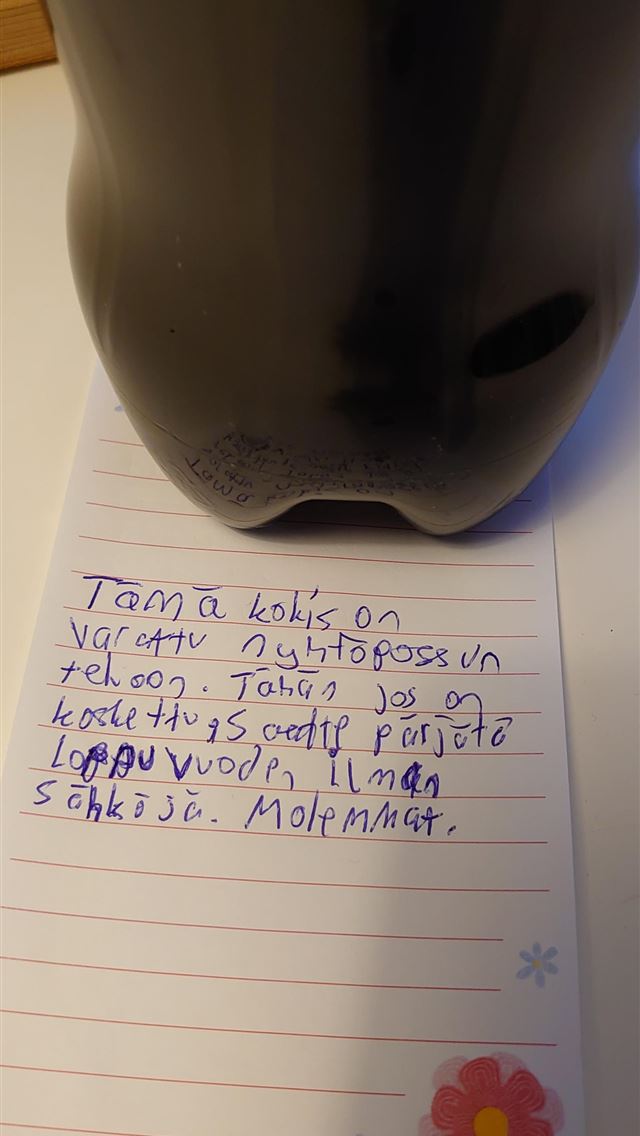 Tämä kokis on
varattu nyhtöpossun
tekoon. Tähän jos on
koskettu, saatte pärjätä
loppu vuoden ilman
sähköjä. Molemmat.